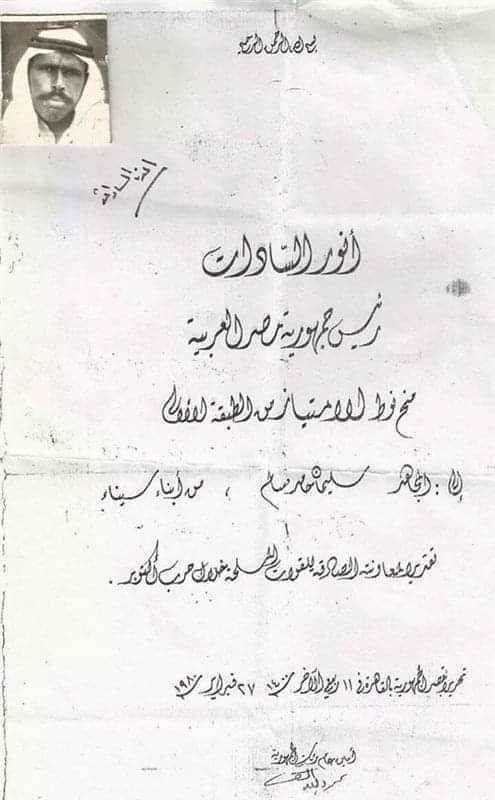 بسم الله الرحمن الرحيم
أنور السادات
أنور السادات
رئيس جمهورية مصر العربية
منح نوط الامتياز من الطبقة الأولى
إلى : المجاهد سليمان حامد سالم ، من أبناء سيناء
تقديرا لمعاونته الصادقة للقوات المسلحة خلال حرب أكتوبر .
تحريرا بقصر الجمهورية بالقاهرة في ١١ ربيع الآخر ١٤٠٠ ٢٧ فبراير ١٩٨٠
أمين عام رئاسة الجمهورية